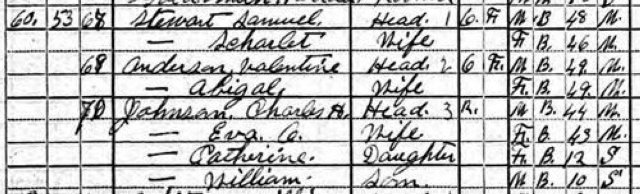 60. 53 68 Stewart Samuel. Head. 1 O. Fr. M. B. 48 M.
— Scharlet Wife Fr. B. 46 M.
69 Anderson, Valentine Head. 2 O Fr. M. B. 49. M.
— Abigal, Wife Fr. B. 49. M.
70 Johnson. Charles H. Head. 3 R. M B. 44 M.
— Eva. C. Wife Fr. B. 43 M.
— Catherine. Daughter Fr. B. 12 S
— William. Son M. B. 10 S